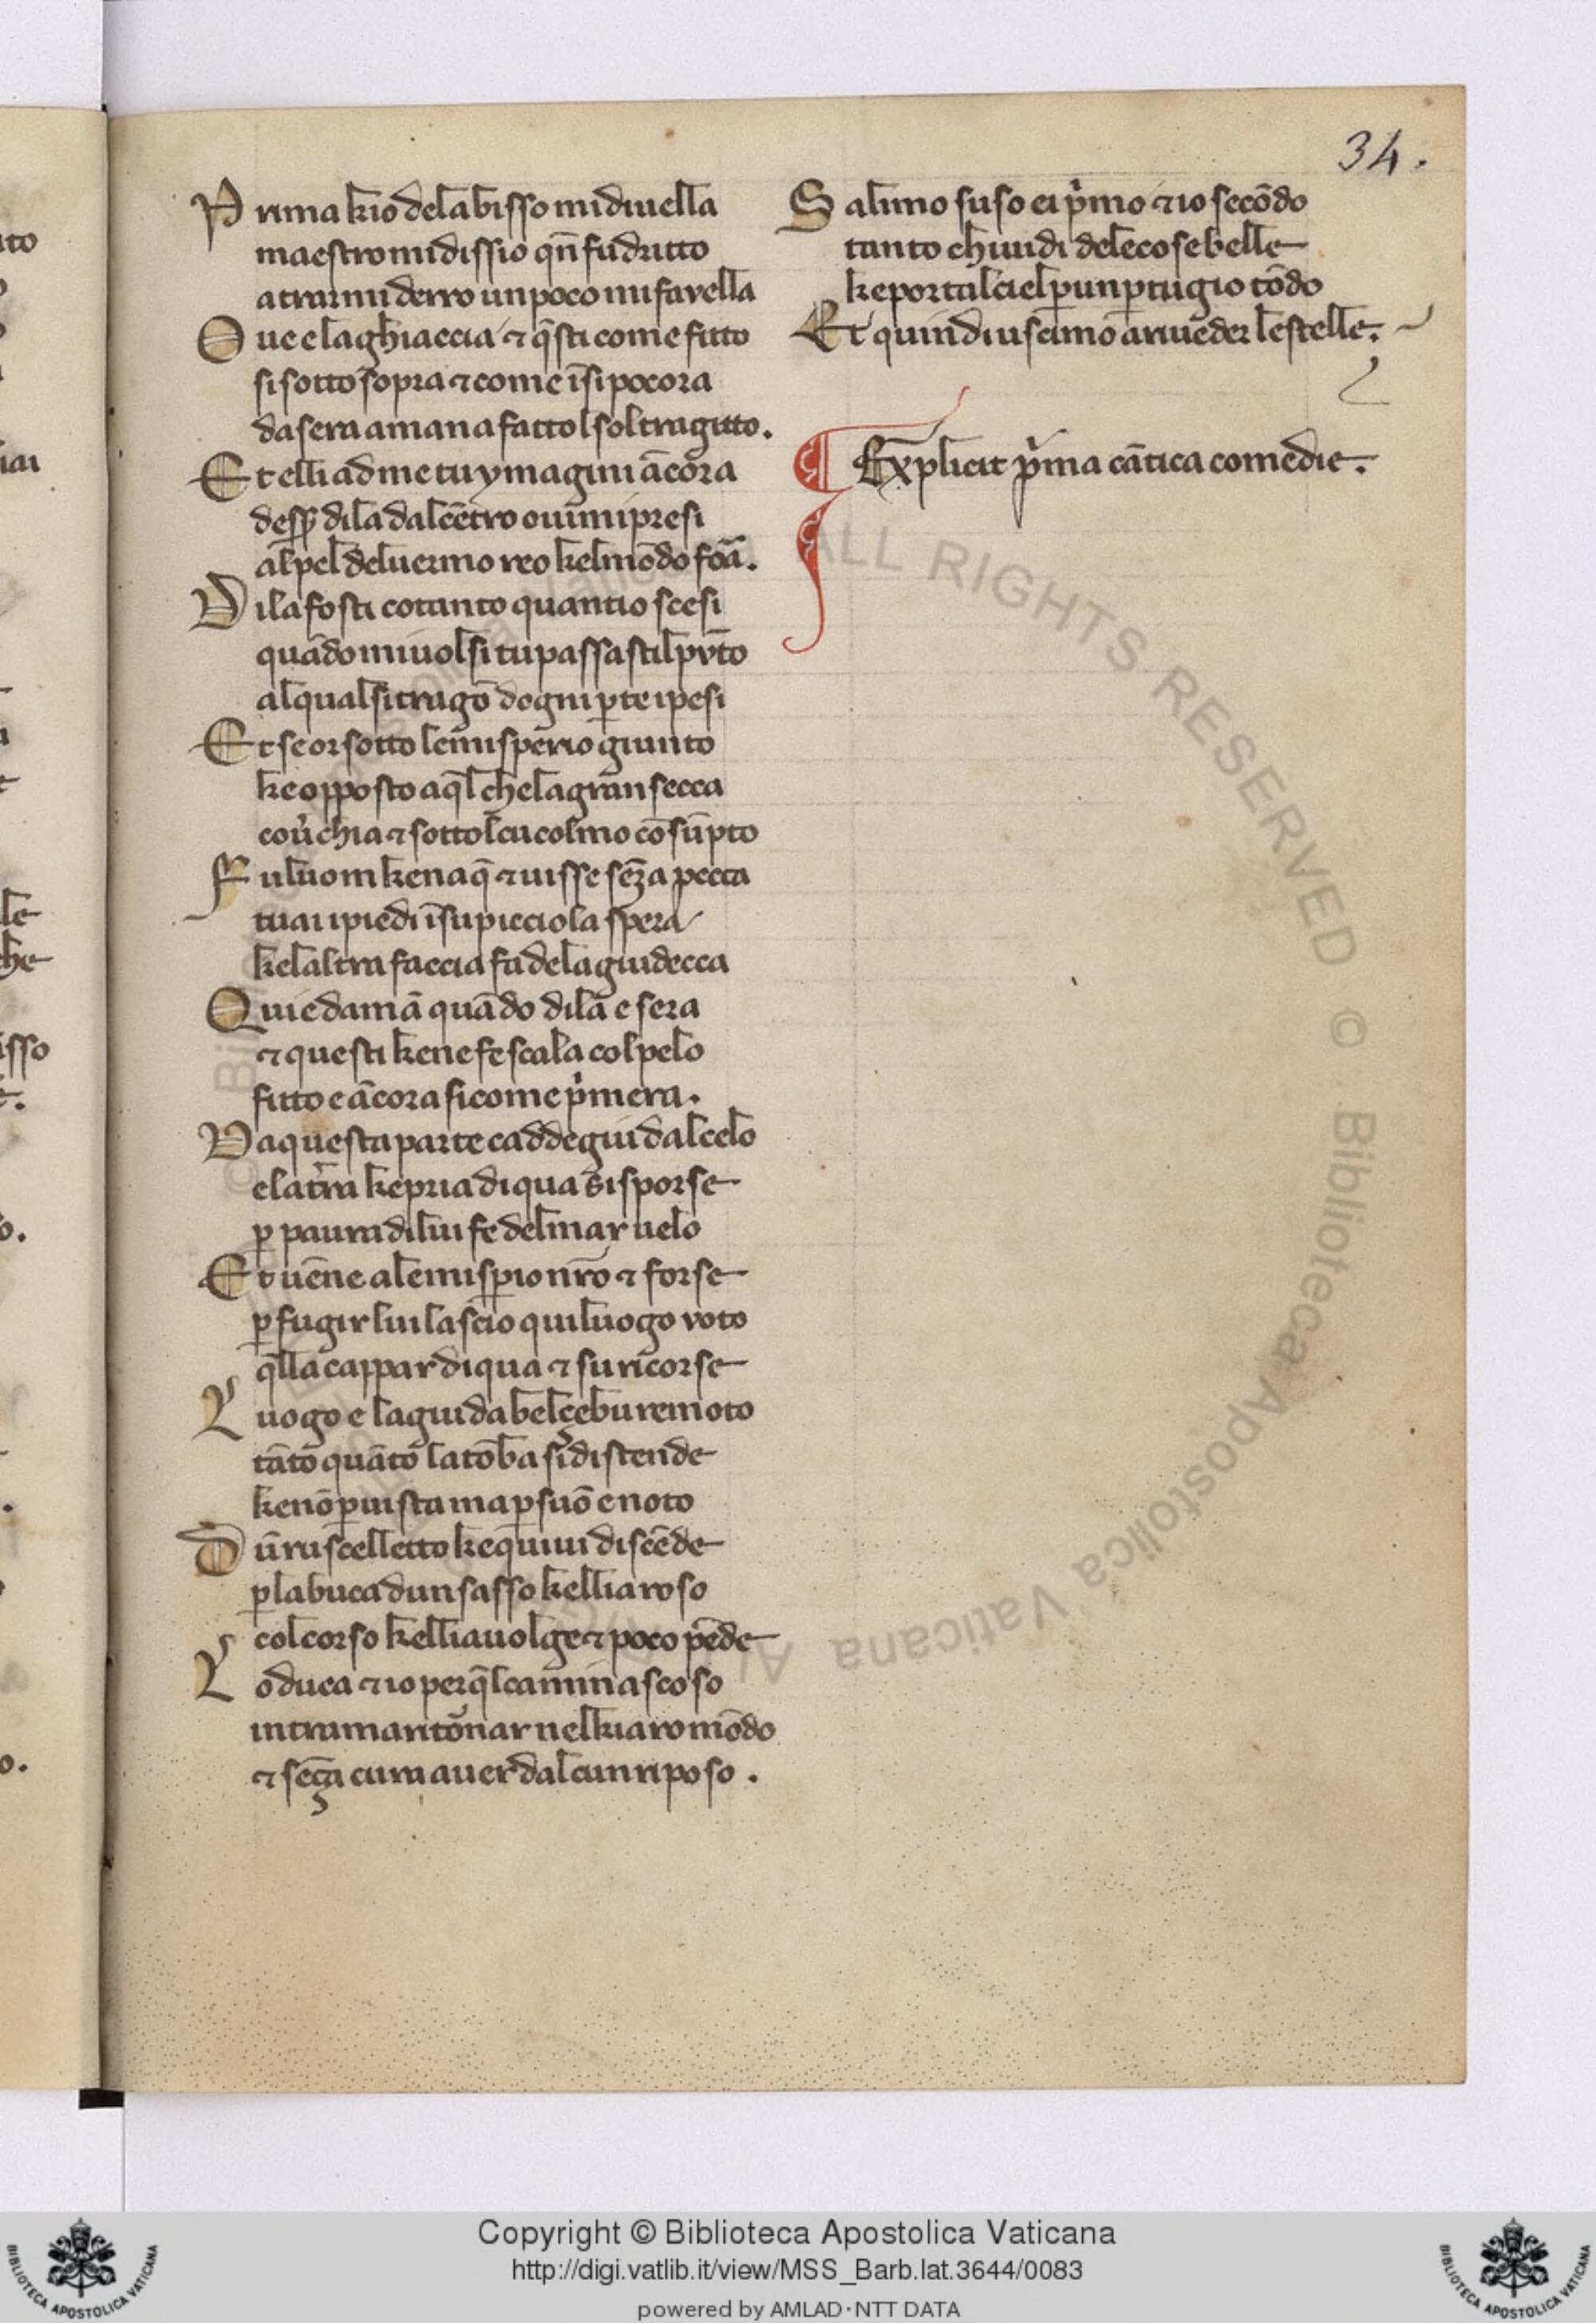 34.
Prima kio delabisso mi diuella
maestro mi dissio qn̄ fu dritto
a trarmi derro un poco mi favella
Oue e laghiaccia ⁊ q̄sti come fitto
si sotto sopra ⁊ come ī si poc ora
da sera a mana fatto l sol tragitto.
Et elli ad me tu ymagini ācora
desꝑ di la dal cētro ouimi presi
al pel del uermo reo kel mōdo foā.
Di la fosti cotanto quantio scesi
quādo mi uolsi tu passasti l pūto
al qual si traḡo dogni ꝑte i pesi
Et se or sotto lemisperio giunto
ke opposto a q̄l che la gran secca
cou̓chia ⁊ sotto l cu colmo cōsūpto
Fu luom ke naq̄ ⁊ uisse sēza pecca
tu ai i piedi ī su picciola spera
ke laltra faccia fa dela giudecca
Qui e da mā quādo di la e sera
⁊ questi ke ne fe scala col pelo
fitto e ācora si come p̓mera.
Da questa parte cadde giu dal celo
e la t̓ra ke pria di qua si sporse
ꝑ paura di lui fe del mar uelo
Et uēne alemisꝑio nr̄o ⁊ forse
ꝑ fugir lui lascio qui luogo voto
q̄lla cappar di qua ⁊ su ricorse
Luogo e lagiu da belçebu remoto
tāto quāto la tōba si distende
ke nō ꝑ uista ma ꝑ suō e noto
Dū ruscelletto ke quiui discēde
ꝑ la buca dun sasso kelli a roso
col corso kelli auolge ⁊ poco pēde
Lo duca ⁊ io per q̄l camin ascoso
intramo a ritōnar nel kiaro mōdo
⁊ sēça cura auer dalcun riposo.
Salimo suso ei p̓mo ⁊ io secōdo
tanto chi uidi dele cose belle
ke porta l ciel ꝑ un ꝑtugio tōdo
Et quindi uscimo a riueder le stelle.
Explicit p̓ma cātica comedie.
© Biblioteca Apostolica Vaticana ALL RIGHTS RESERVED © Biblioteca Apostolica Vaticana
Copyright © Biblioteca Apostolica Vaticana
http://digi.vatlib.it/view/MSS_Barb.lat.3644/0083
powered by AMLAD·NTT DATA
BIBLIOTECA APOSTOLICA VATICANA
BIBLIOTECA APOSTOLICA VATICANA